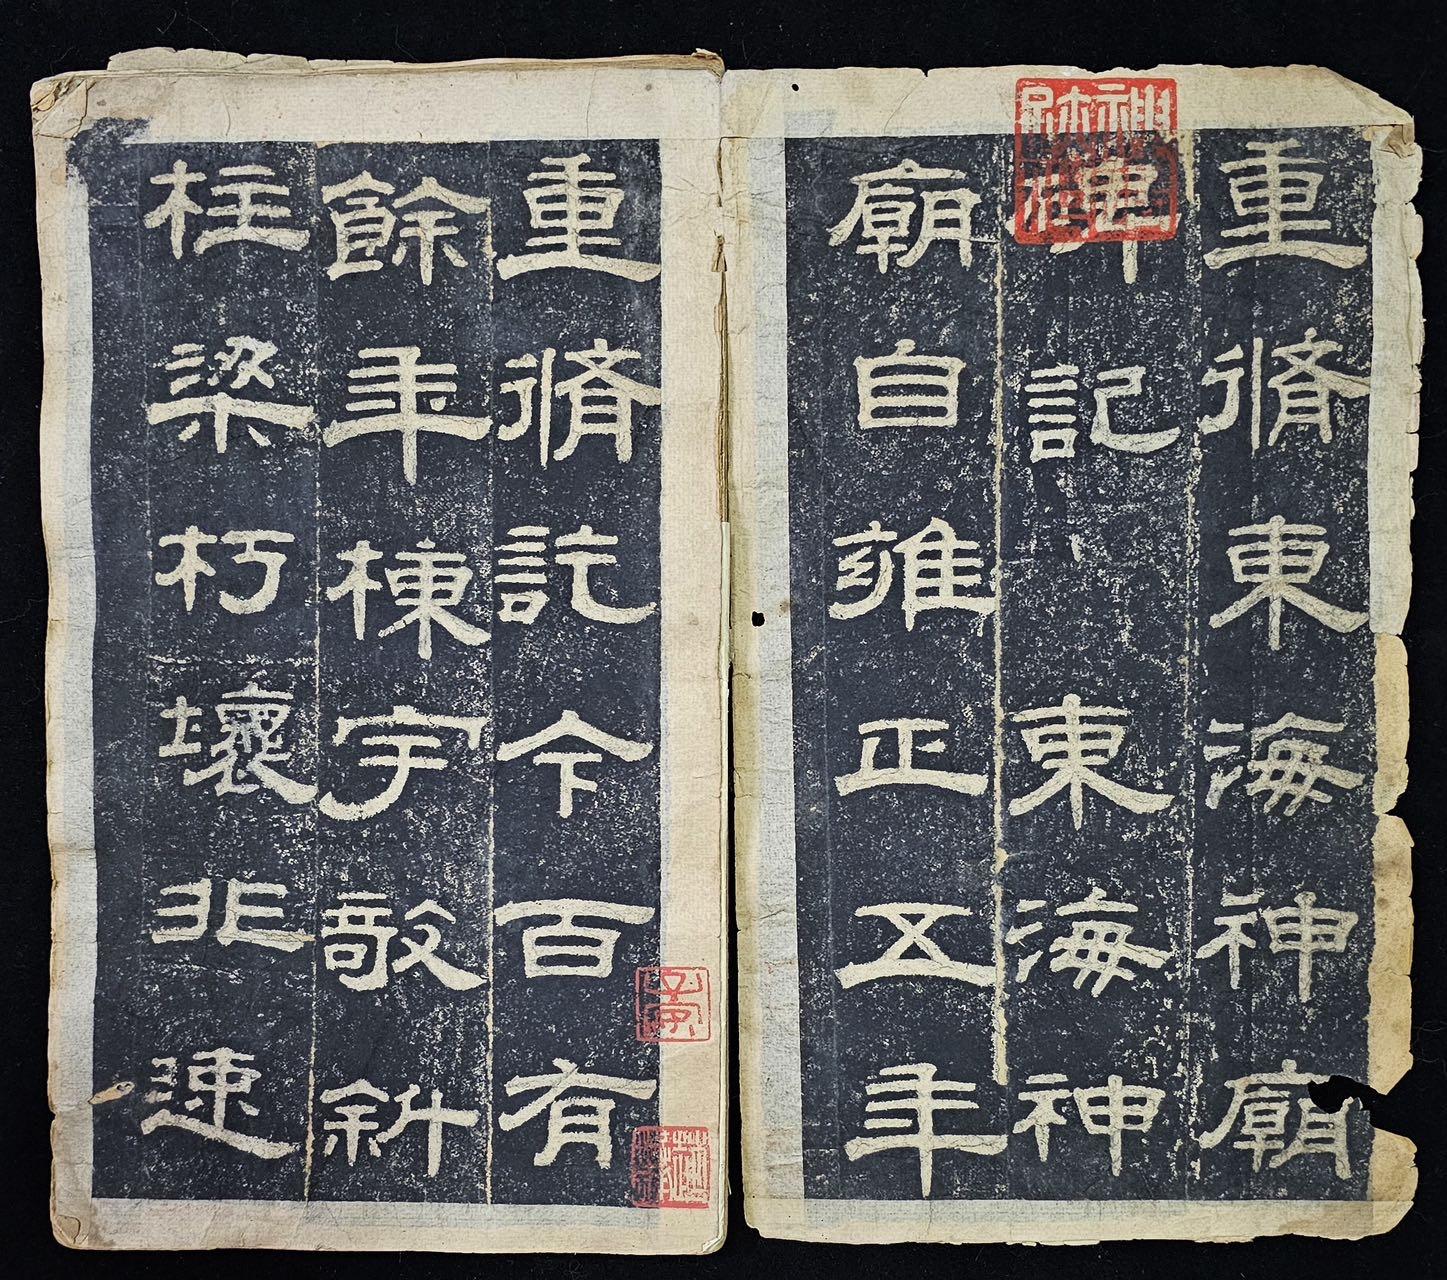 重脩東海神廟
碑記　東海神
廟自雍正五年
重脩訖今百有
餘年棟宇敧斜
柱梁朽壞非速